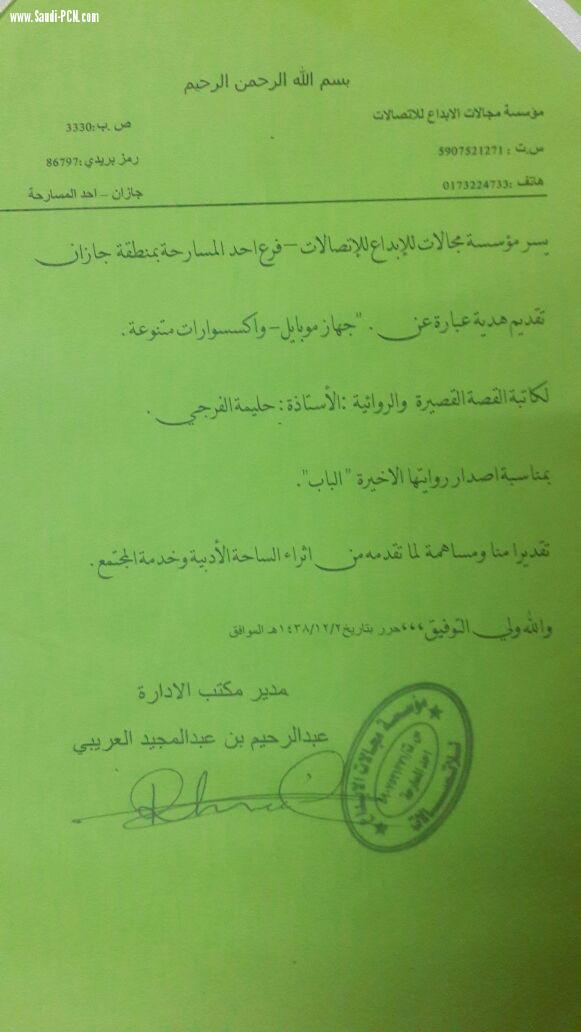 www.Saudi-PCN.com
بسم الله الرحمن الرحيم
مؤسسة مجالات الابداع للاتصالات
ص .ب:3330
س.ت : 5907521271
رمز بريدي :86797
هاتف :0173224733
جازان – احد المسارحة
يسر مؤسسة مجالات للإبداع للإتصالات – فرع احد المسارحة بمنطقة جازان
تقديم هدية عبارة عن . "جهاز موبايل – واكسسوارات متنوعة .
لكاتبة القصة القصيرة والروائية :الأستاذة : حليمة الفرجي .
بمناسبة اصدار روايتها الاخيرة " الباب".
تقديرا منا ومساهمة لما تقدمه من اثراء الساحة الأدبية وخدمة المجتمع .
والله ولي التوفيق،،،حرر بتاريخ ١٤٣٨/١٢/٢هـ الموافق
مدير مكتب الادارة
عبدالرحيم بن عبدالمجيد العريبي
مؤسسة مجالات الابداع
للاتصالات
احد المسارحة